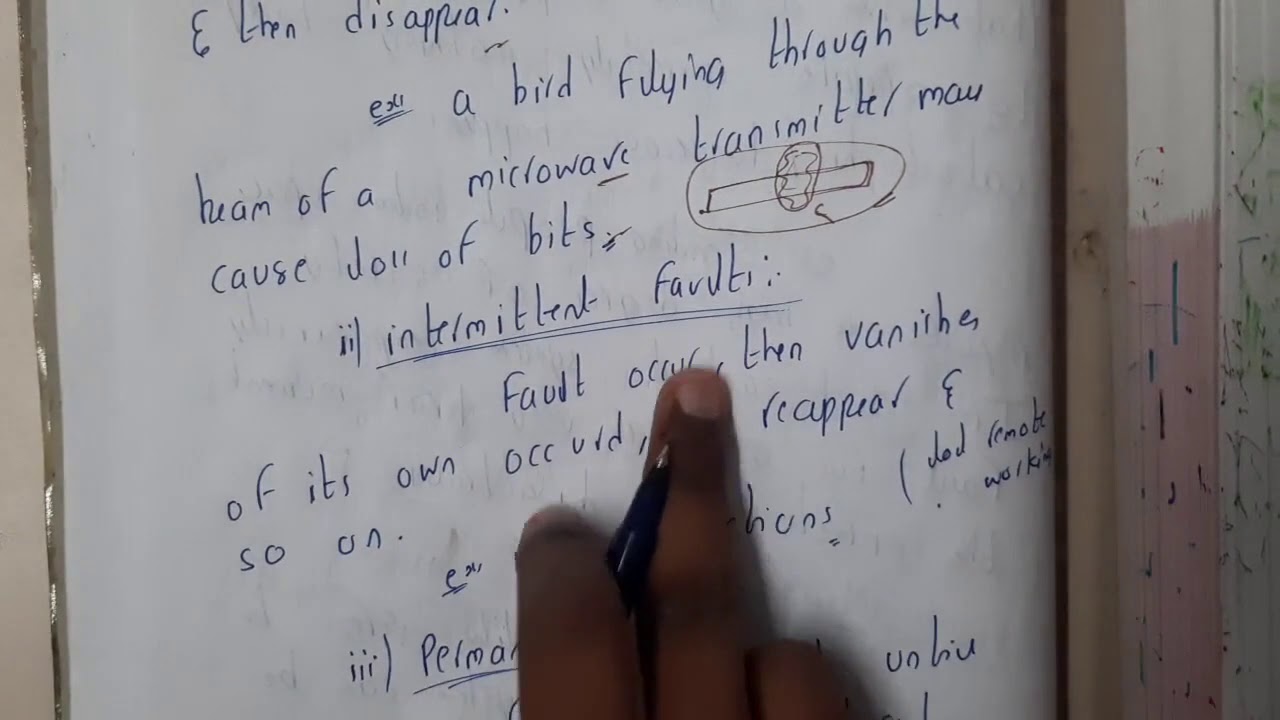 & then disappear.
ex:, a bird flying through the
beam of a microwave transmitter may
cause loss of bits.
ii) intermittent Faults:
Fault occur, then vanishes
of its own occurd, reappear &
so on.
(dod remote
working
ex:,
iii) Perma